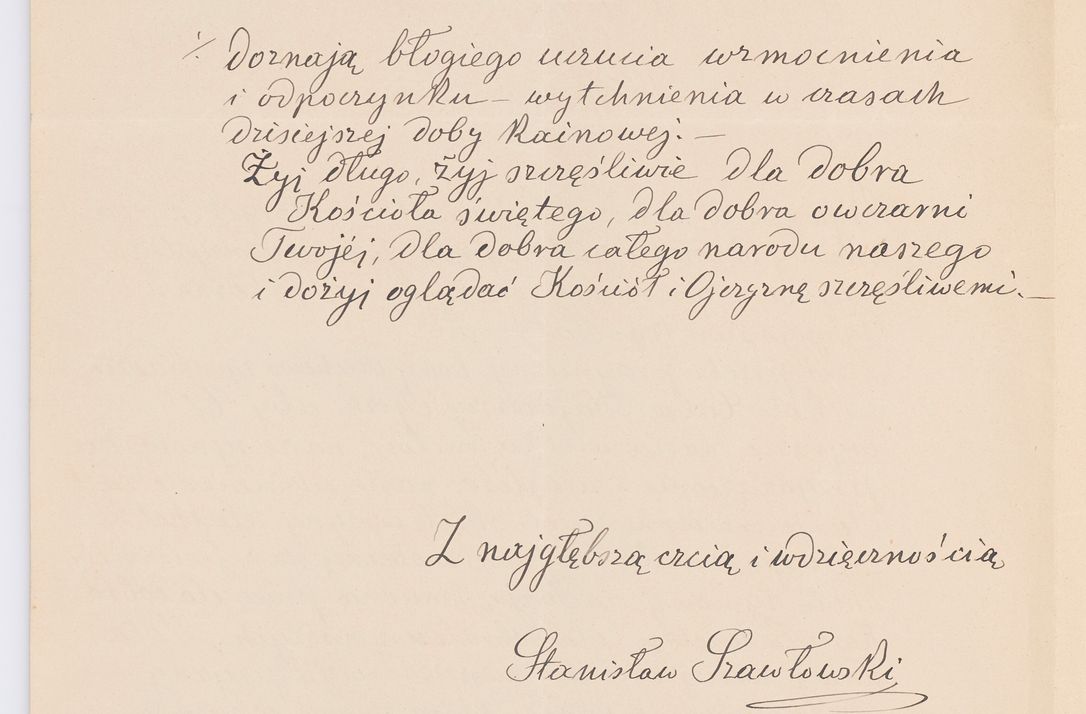 ./. doznają błogiego uczucia wzmocnienia
i odpoczynku – wytchnienia w czasach
dzisiejszej doby Kainowej. –
Żyj długo, żyj szczęśliwie dla dobra
Kościoła świętego, dla dobra owczarni
Twojéj, dla dobra całego narodu naszego
i dożyj oglądać Kościół i Ojczyznę szczęśliwemi. –
Z najgłębszą czcią i wdzięcznością
Stanisław Szawłowski